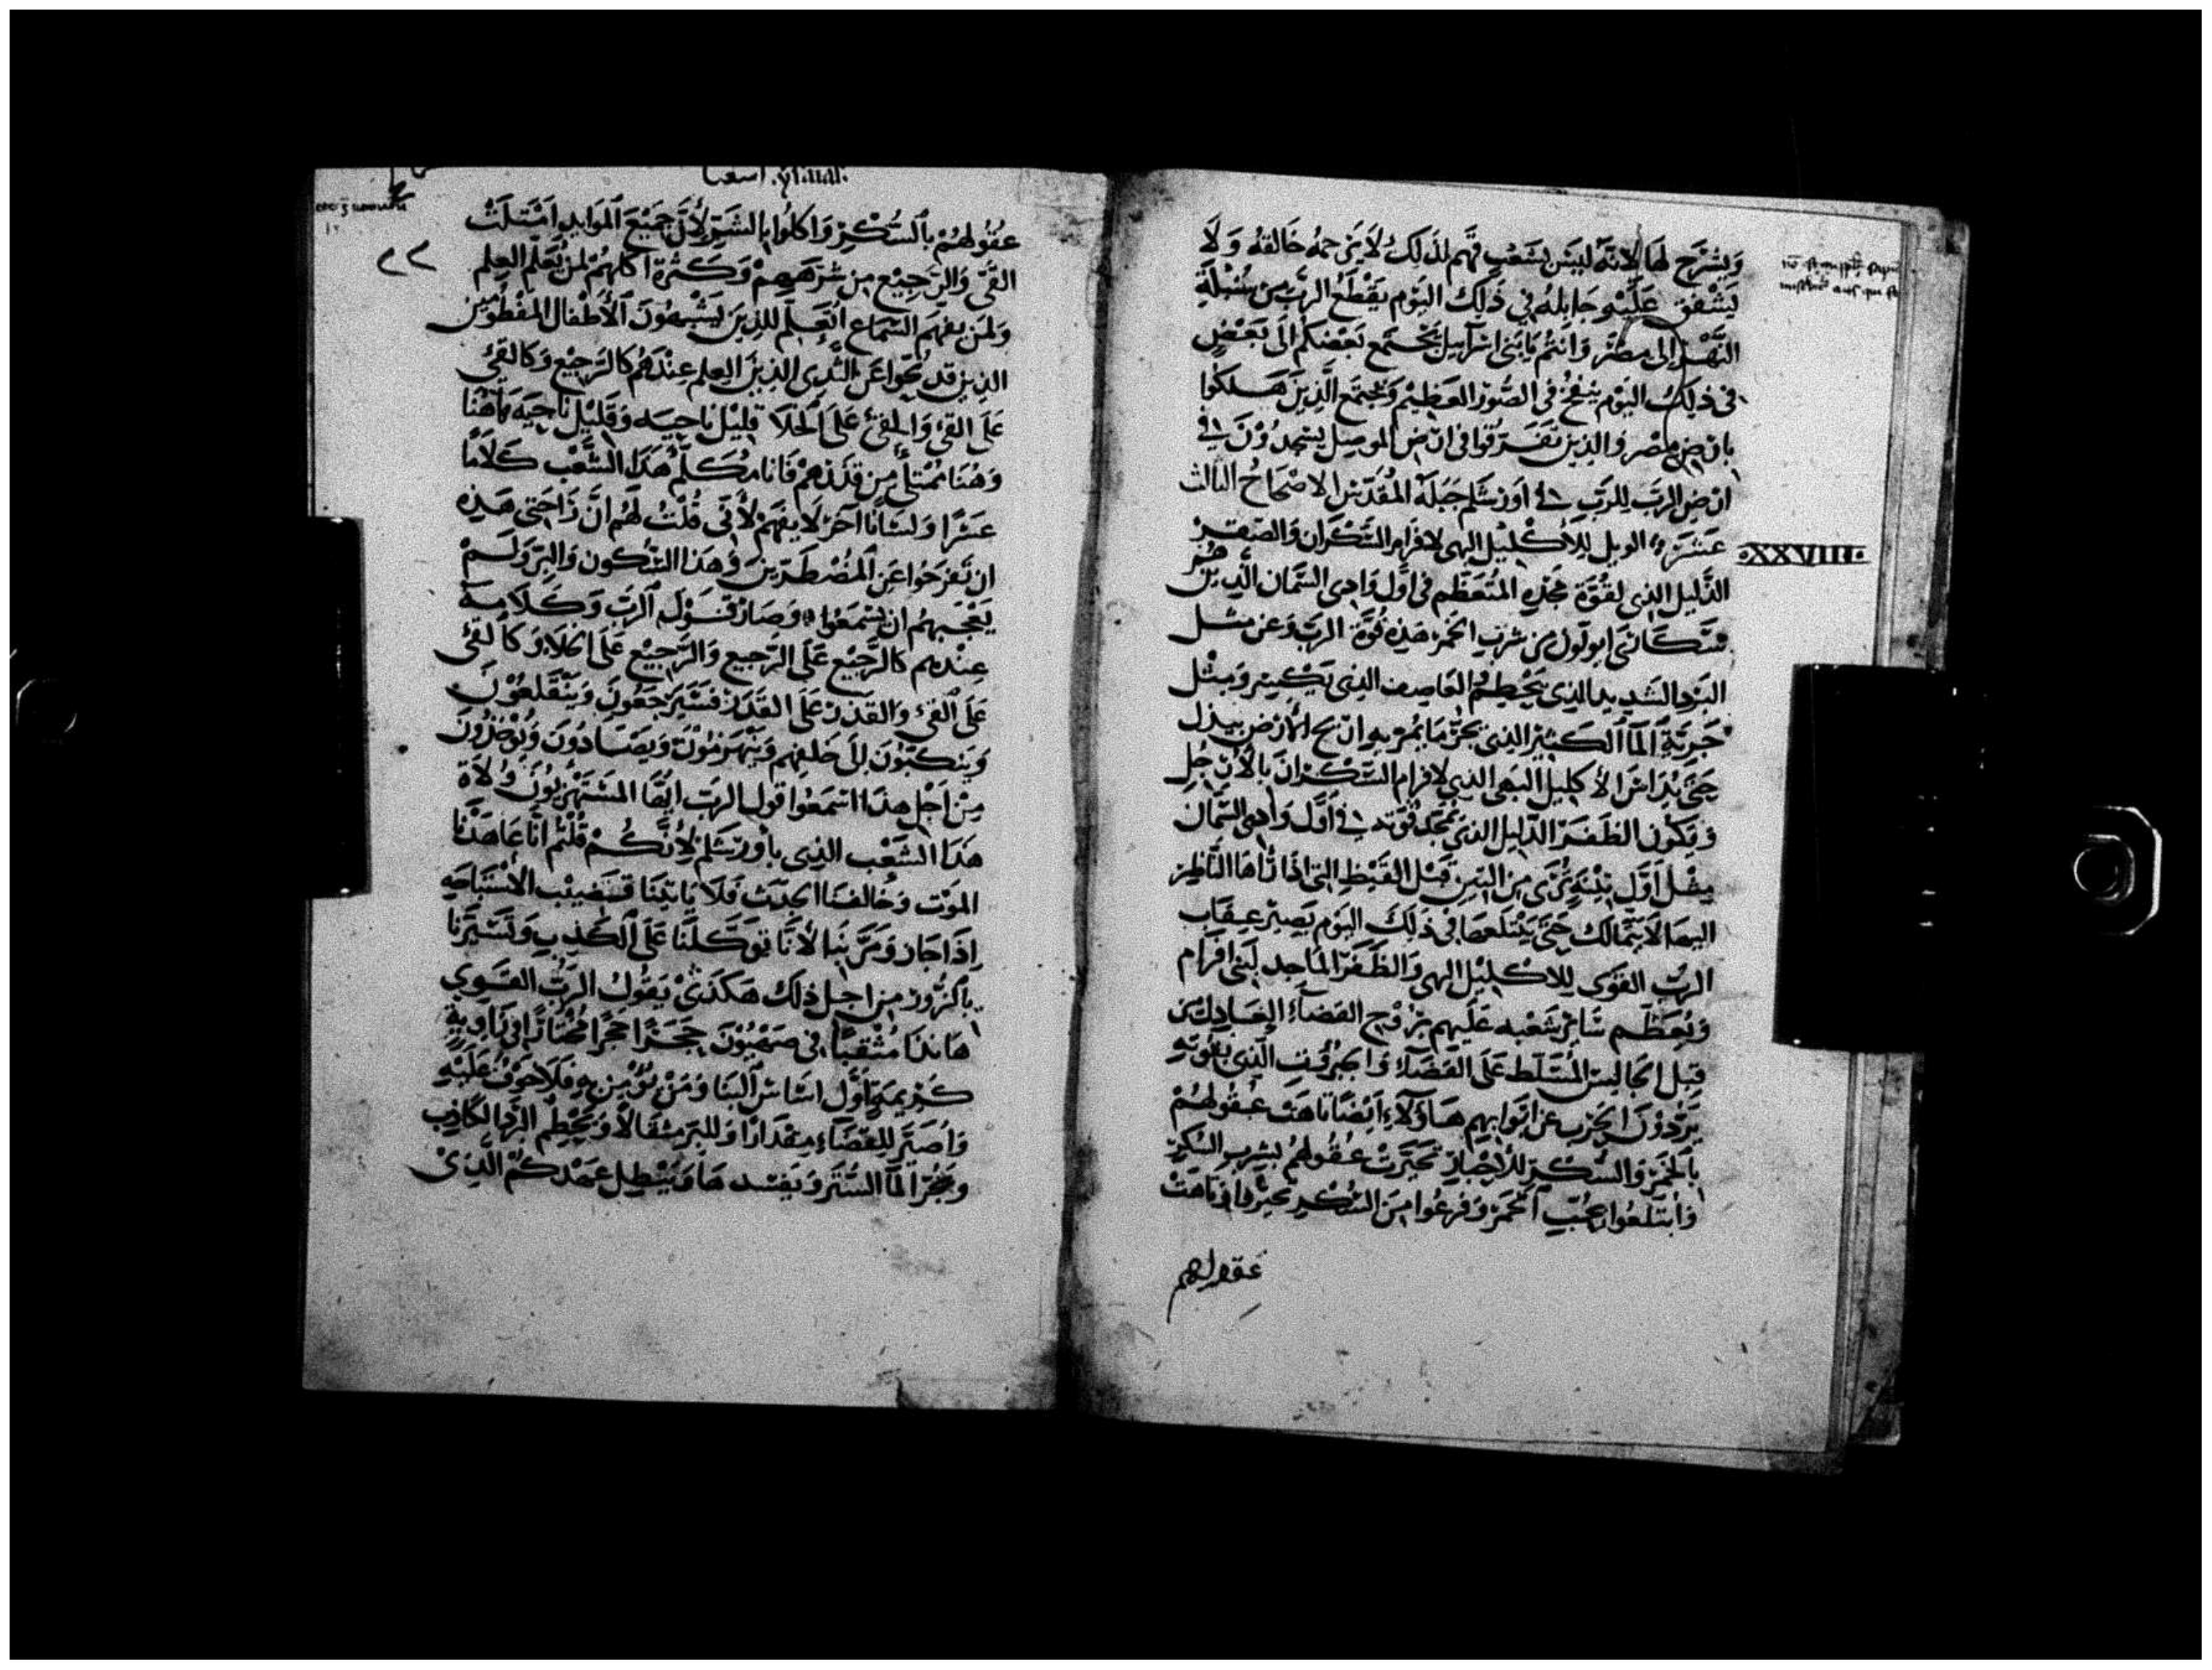 ويشرح لها لانه ليس بشعب فهم لذلك لا يرحمه خالقه ولا
يشفق عليه جابله في ذلك اليوم يقطع الرب من سنبلة
النهر الى مصر وانتم يا بنى اسرآييل يجتمع بعضكم الى بعض
فى ذلك اليوم ينفخ فى الصور العظيم ويجتمع الذين هلكوا
بارض مصر والذين تفرقوا فى ارض الموصل يسجدون فى
ارض الرب للرب فى اورشلم جبله المقدس الاصحاح الثالث
عشر الويل للاكليل البهى لافرام السكران والصفر
XXVIII
الذليل الذى لقوة مجده المتعظم فى اول وادى السمان الذين هم
سكارى من شرب الخمر هذه قوة الرب وعن مثل
البرد الشديد الذى يحطمه العاصف الذى يكسر ومثل
جرية المآ الكثير الذى يجر ما يمر به اربح الارض بيذل
حتى يداس الاكليل البهى الذى لافرام السكران بالارجل
وتكون الظفر الذليل الذى مجد قوته فى اول وادى السمان
مثل اول تينه ترى من التين قبل القيظ التى اذا رآها الناظر
اليها لا يتمالك حتى يبتلعها فى ذلك اليوم يصير عقاب
الرب القوى للاكليل البهى والظفر الماجد لبنى افرام
ويعظم سائر شعبه عليهم بروح القضآء العادل من
قبل الجالس المسلط على القضآء واجبروت الذى بقوته
يردون الحرب عن ابوابهم هاولاء ايضا تاهت عقولهم
بالخمر والسكر للاحبار تحيرت عقولهم بشرب السكر
وابتلعوا بحب الخمر وفزعوا من السكر تحيروا وتاهت
عقولهم
اسعيا
٢٢
عقولهم بالسكر واكلوا بالشر لان جميع الموايد امتلت
القى والرجيع من شرههم وكثرة اكلهم لمن يعلم العلم
ولمن يفهم السماع العلم للذين يشبهون الاطفال المفطومين
الذين قد نحوا عن الثدى الذين العلم عندهم كالرجيع وكالقئ
على القئ والقئ على الخلا قليل ناحيه وقليل ناحيه هاهنا
وهنا ممتلئ من قذرهم فانا مكلم هذا الشعب كلاما
عسرا ولسانا اخر لا يفهم لانى قلت لهم ان راحتى هذه
ان تفرحوا عن المضطرين وهذا السكون والبر ولم
يعجبهم ان يسمعوا وصار قول الرب وكلامه
عندهم كالرجيع على الرجيع والرجيع على الخلا وكالقئ
على القئ والقذر على القذر فسيرجعون وينقلعون
وينكبون الى خلفهم وينهزمون ويصادون ويوخذون
من اجل هذا اسمعوا قول الرب ايها المستهزيون ولاة
هذا الشعب الذى باورشلم لانكم قلتم انا عاهدنا
الموت وخالفنا الجدث فلا ياتينا قضيب الاستباحه
اذا جاز ومر بنا لانا توكلنا على الكذب وتسترنا
بالزور من اجل ذلك هكذى يقول الرب القوى
هانذا مثقبا فى صهيون حجرا حجرا مختارا فى زاوية
كريمة اول اساس البنا ومن يؤمن به فلا خوف عليه
واصير للقضآء مقدارا وللبر مثقالا ويحطم البرد الكاذب
ويجر المآ الستر ويفسدها ويبطل عهدكم الذى